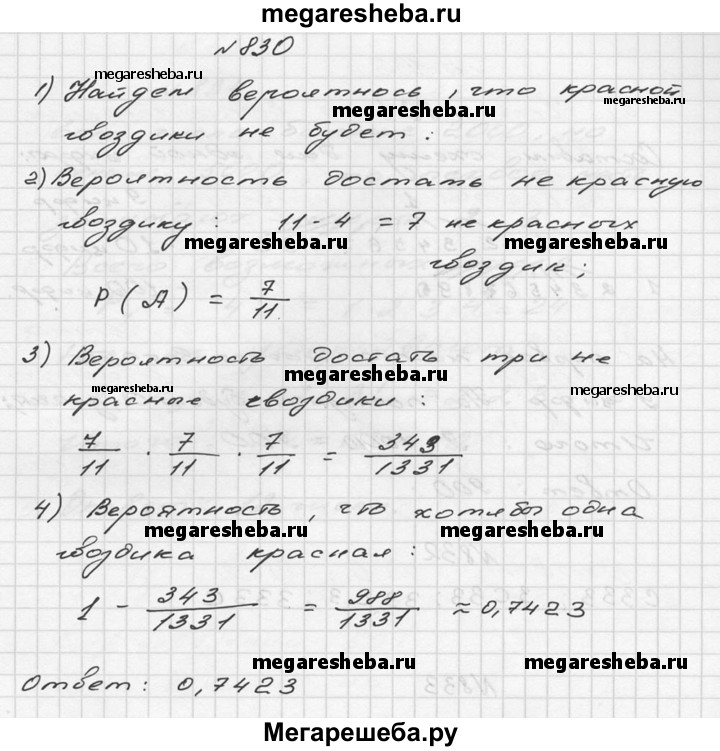 megaresheba.ru
№830
megaresheba.ru
1) Найдем вероятнось, что красной
megaresheba.ru
megaresheba.ru
гвоздики не будет:
2) Вероятность достать не красную
гвоздику: 11-4 = 7 не красных
megaresheba.ru
megaresheba.ru
гвоздик;
P(A) = 7/11
3) Вероятность достать три не
megaresheba.ru
megaresheba.ru
megaresheba.ru
красные гвоздики:
7/11 · 7/11 · 7/11 = 343/1331
4) Вероятность, что хотябы одна
megaresheba.ru
megaresheba.ru
гвоздика красная:
1 - 343/1331 = 988/1331 ≈ 0,7423
megaresheba.ru
megaresheba.ru
Ответ: 0,7423
Мегарешеба.ру